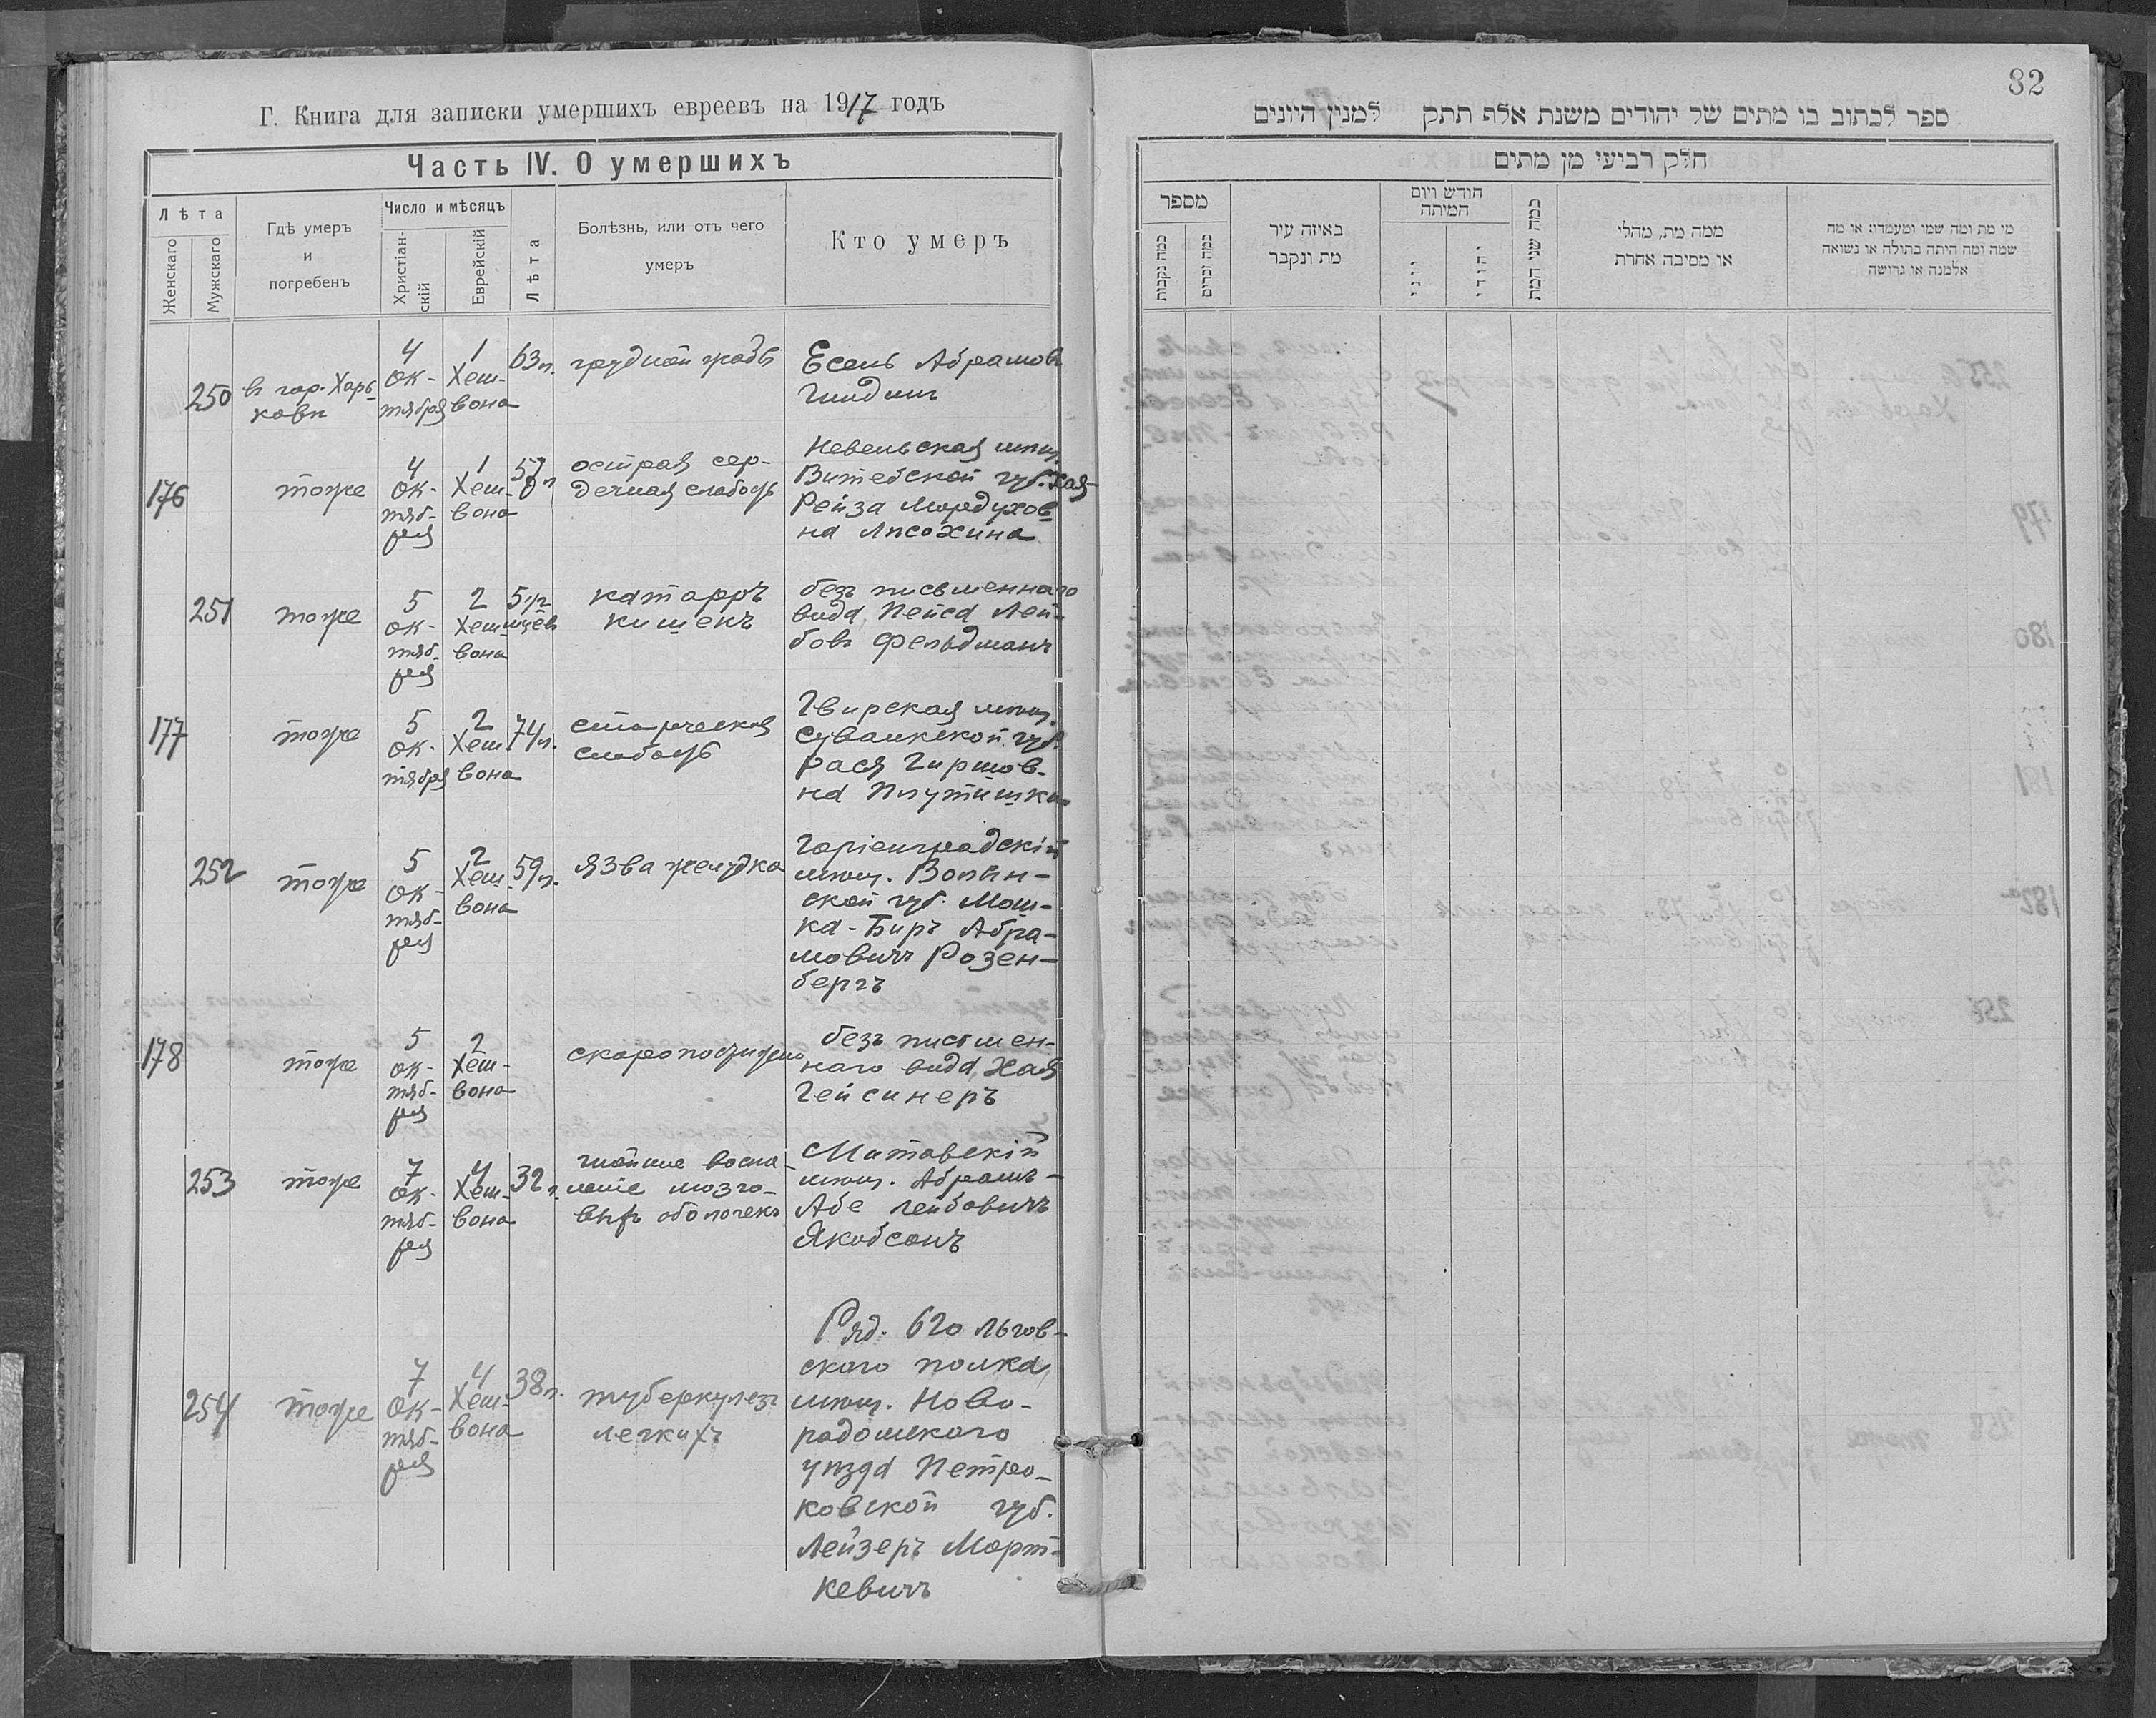 82
Г. Книга для записки умершихъ евреевъ на 1917 годъ
Часть IV. О умершихъ
Лѣта
Женскаго
Мужскаго
Гдѣ умеръ
и
погребенъ
Число и мѣсяцъ
Христіан-
скій
Еврейскій
Лѣта
Болѣзнь, или отъ чего
умеръ
Кто умеръ
250
в гор. Харь
ковѣ
4
Ок-
тября
1
Хеш-
вона
63 л.
грудной жабы
Есель Абрамовъ
Гиндин
176
тоже
4
Ок-
тяб-
ря
1
Хеш-
вона
57
острая сер-
дечная слабость
Невельская мѣщ.
Витебской губ. Хая-
Рейза Мордухов
на Лисохина
251
тоже
5
Ок-
тяб-
ря
2
Хеш
вона
5 1/2
мцев
катарръ
кишекъ
безъ письменнаго
вида Пейса Лей-
бовъ Фельдманъ
177
тоже
5
Ок-
тября
2
Хеш-
вона
74 л.
старческая
слабость
мѣщ.
Сувалкской губ.
Рася Гиршов-
на
252
тоже
5
Ок-
тяб-
ря
2
Хеш-
вона
59 л.
язва желудка
мѣщ. Волын-
ской губ. Мош-
ка-Беръ Абра-
мовичъ Розен-
бергъ
178
тоже
5
Ок-
тяб-
ря
2
Хеш-
вона
скоропостижно
безъ письмен-
наго вида Хая
Гейсинеръ
253
тоже
7
Ок-
тяб-
ря
4
Хеш-
вона
32 л.
гнойное воспа-
леніе мозго-
выхъ оболочекъ
Митавскій
мѣщ. Абрамъ-
Абе Лейбовичъ
Якобсонъ
254
тоже
7
Ок-
тяб-
ря
4
Хеш-
вона
38 л.
туберкулезъ
легкихъ
Ряд. 620 Льгов-
скаго полка
мѣщ. Ново-
радомскаго
уѣзда Петро-
ковской губ.
ЛейзеръМорт-
кевичъ
ספר לכתוב בו מתים של יהודים משנת אלף תתק למנין היונים
חלק רביעי מן מתים
מספר
כמה נקבות
כמה זכרים
באיזה עיר
מת ונקבר
חודש ויום
המיתה
יוני
יהודי
כמה שני המת
ממה מת, מחלי
או מסיבה אחרת
מי מת ומה שמו ומעמדו או מה
שמה ומה היתה בתולה או נשואה
אלמנה או גרושה